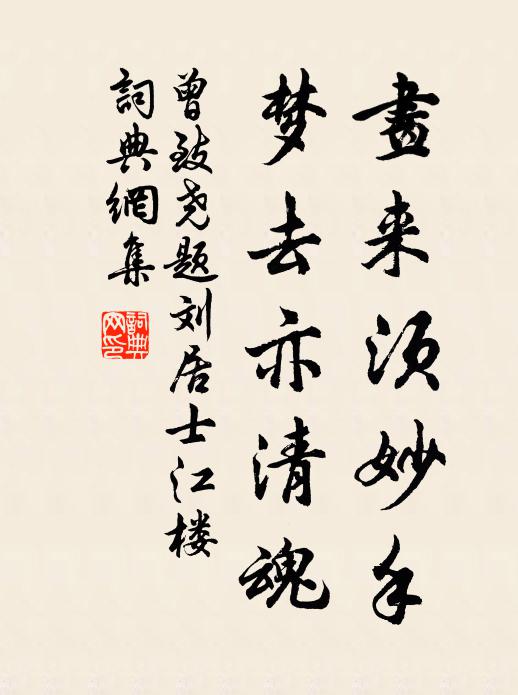 畫来须妙手
梦去亦清魂
曾致尧题刘居士江楼
詞典網集
詞典网印